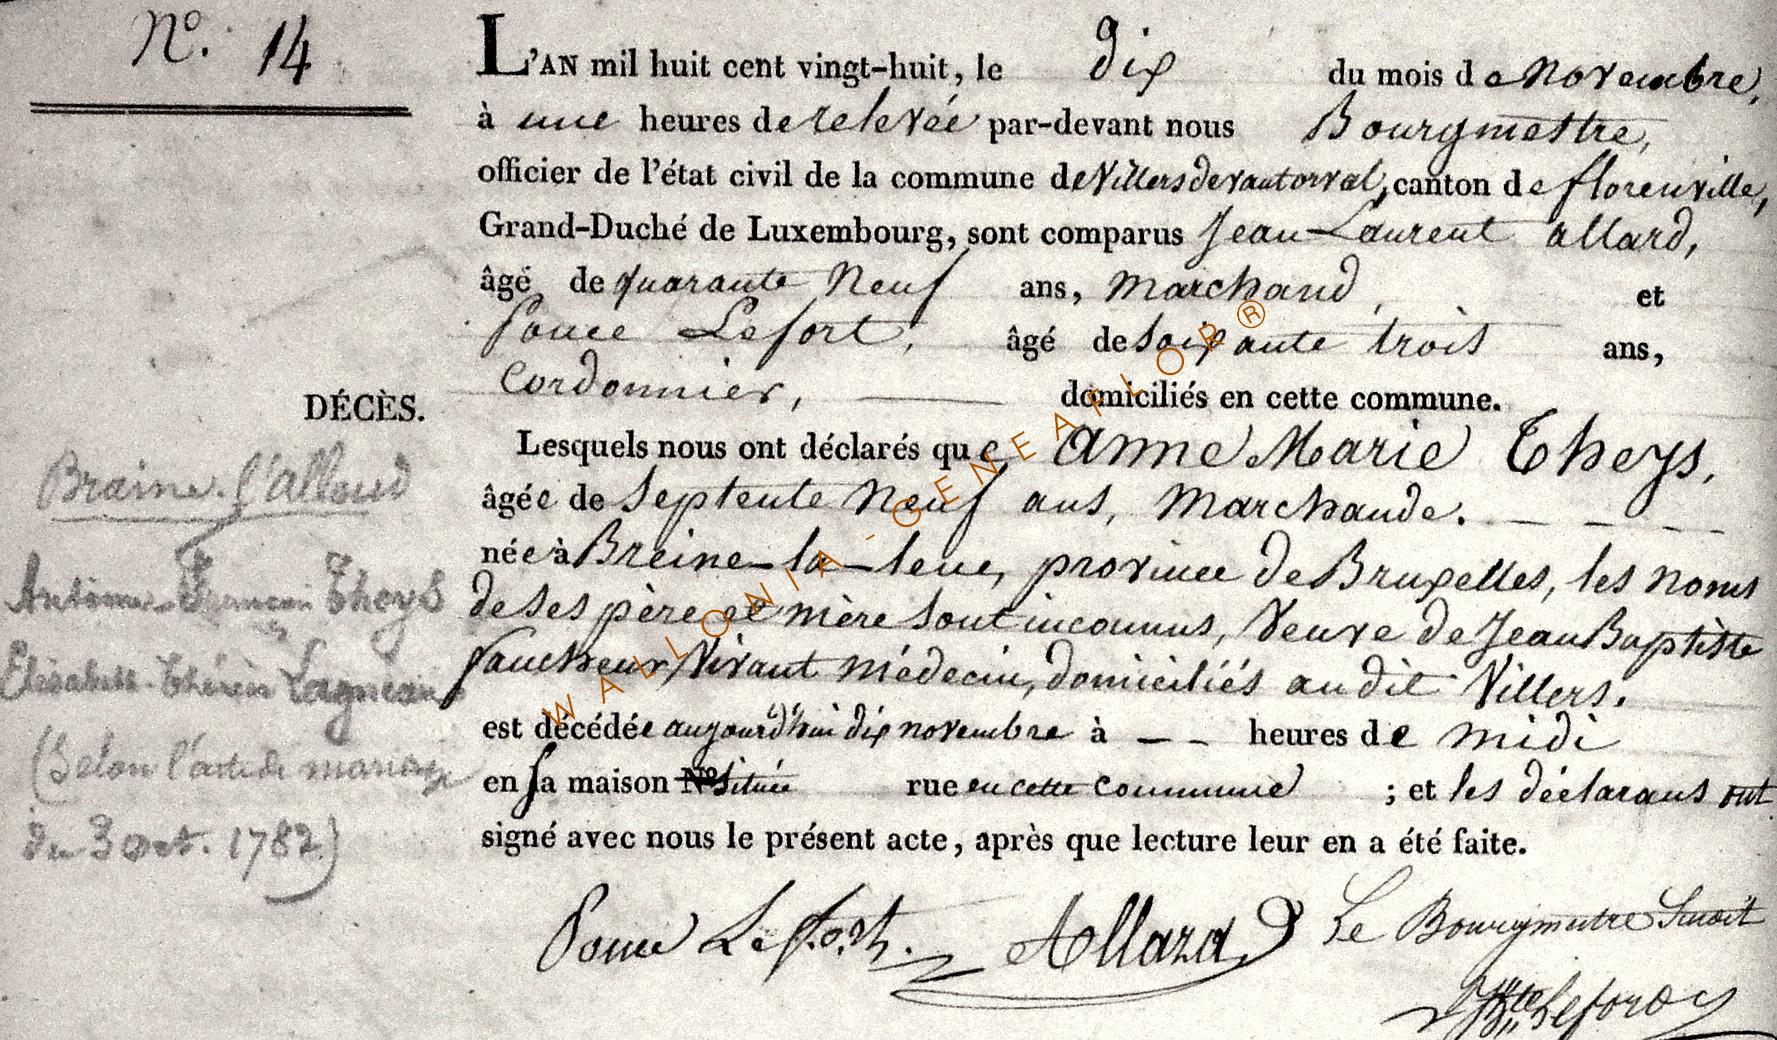 N.º 14
L'AN mil huit cent vingt-huit, le dix du mois de Novembre,
à une heures de relevée par-devant nous Bourgmestre,
officier de l'état civil de la commune de Villers devant orval, canton de florenville,
Grand-Duché de Luxembourg, sont comparus Jean-Laurent allard,
âgé de quarante Neuf ans, Marchand, et
Ponce Lefort, âgé de soixante trois ans,
Cordonnier, domiciliés en cette commune.
DÉCÈS.
Lesquels nous ont déclarés que, Anne Marie Theys,
âgée de Septente Neuf ans, Marchande.
née à Breine-la-leue, province de Bruxelles, les noms
de ses père et mère sont inconnus, Veuve de Jean Baptiste
faucheur, Vivant médecin, domiciliés audit Villers.
est décédée aujourd'hui dix novembre à -- heures de midi
en sa maison Nº située rue en cette Commune ; et les déclarans ont
signé avec nous le présent acte, après que lecture leur en a été faite.
Braine-l'alleud
Antoine-François Theys
Elisabeth-Thérèse Lagneau
(Selon l'acte de mariage
du 3 Oct. 1782)
Ponce Lefort. Allard Le Bourgmestre
Lefort
WALLONIA - GENEAFLOR ®